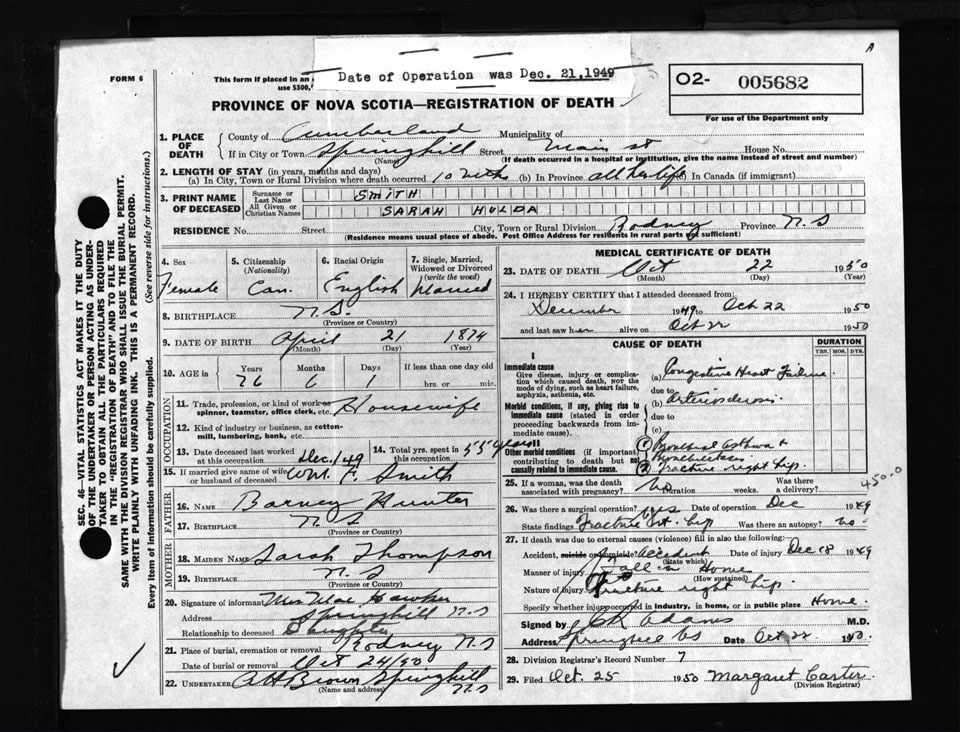 A
Date of Operation was Dec. 21, 1949
FORM 6
This form if placed in an
use $300,
O2- 005682
For use of the Department only
PROVINCE OF NOVA SCOTIA—REGISTRATION OF DEATH
1. PLACE OF DEATH
County of Cumberland Municipality of
If in City or Town Springhill Street Main St House No.
(Name) (If death occurred in a hospital or institution, give the name instead of street and number)
2. LENGTH OF STAY (in years, months and days)
(a) In City, Town or Rural Division where death occurred. 10 mths (b) In Province all her life In Canada (if immigrant)
3. PRINT NAME OF DECEASED
Surname or Last Name SMITH
All Given or Christian Names SARAH HULDA
RESIDENCE No. Street City, Town or Rural Division Rodney Province N.S
(Residence means usual place of abode. Post Office Address for residents in rural parts not sufficient)
4. Sex Female
5. Citizenship (Nationality) Can.
6. Racial Origin English
7. Single, Married, Widowed or Divorced (write the word) Married
8. BIRTHPLACE N.S.
(Province or Country)
9. DATE OF BIRTH April 21 1874
(Month) (Day) (Year)
10. AGE in Years Months Days If less than one day old
76 6 1 hrs. or min.
OCCUPATION
11. Trade, profession, or kind of work as spinner, teamster, office clerk, etc. Housewife
12. Kind of industry or business, as cotten-mill, lumbering, bank, etc.
13. Date deceased last worked at this occupation Dec./49
14. Total yrs. spent in this occupation 55 years
15. If married give name of wife or husband of deceased Wm. F. Smith
FATHER
16. Name Barney Hunter
17. Birthplace N S
(Province or Country)
MOTHER
18. Maiden Name Sarah Thompson
19. Birthplace N. S
(Province or Country)
20. Signature of informant Mrs Mae Hawker
Address Springhill N.S
Relationship to deceased Daughter
21. Place of burial, cremation or removal Rodney N.S
Date of burial or removal Oct 24/50
22. UNDERTAKER A H Brown Springhill N.S
(Name and address)
MEDICAL CERTIFICATE OF DEATH
23. DATE OF DEATH Oct 22 1950
(Month) (Day) (Year)
24. I HEREBY CERTIFY that I attended deceased from:
December 1949 to Oct 22 1950
and last saw her alive on Oct 22 1950
CAUSE OF DEATH
DURATION
YRS. MOS. DYS.
I
Immediate cause
Give disease, injury or complication which caused death, NOT the mode of dying, such as heart failure, asphyxia, asthenia, etc.
(a) Congestive Heart Failure
due to
(b) Arteriosclerosis
Morbid conditions, if any, giving rise to immediate cause (stated in order proceeding backwards from immediate cause).
due to
(c)
II
Other morbid conditions (if important) contributing to death but not causally related to immediate cause.
1 Bronchial Asthma &
Bronchiectasis
2 Fracture right hip.
25. If a woman, was the death associated with pregnancy? No Duration weeks. Was there a delivery?
450-0
26. Was there a surgical operation? yes Date of operation Dec 1949
State findings Fracture rt. hip Was there an autopsy? no.
27. If death was due to external causes (violence) fill in also the following:
Accident, suicide or homicide? accident Date of injury Dec 18 1949
(State which)
Manner of injury Fall in Home
(How sustained)
Nature of injury Fracture right hip.
Specify whether injury occurred in industry, in home, or in public place Home
Signed by Adams M.D.
Address Springhill NS Date Oct 22 1950.
28. Division Registrar's Record Number 7
29. Filed Oct. 25 1950 Margaret Carter
(Division Registrar)
SEC. 46—VITAL STATISTICS ACT MAKES IT THE DUTY
OF THE UNDERTAKER OR PERSON ACTING AS UNDER-
TAKER TO OBTAIN ALL THE PARTICULARS REQUIRED
IN THE "REGISTRATION OF DEATH" AND TO FILE THE
SAME WITH THE DIVISION REGISTRAR WHO SHALL ISSUE THE BURIAL PERMIT.
WRITE PLAINLY WITH UNFADING INK. THIS IS A PERMANENT RECORD.
Every item of information should be carefully supplied. (See reverse side for instructions.)